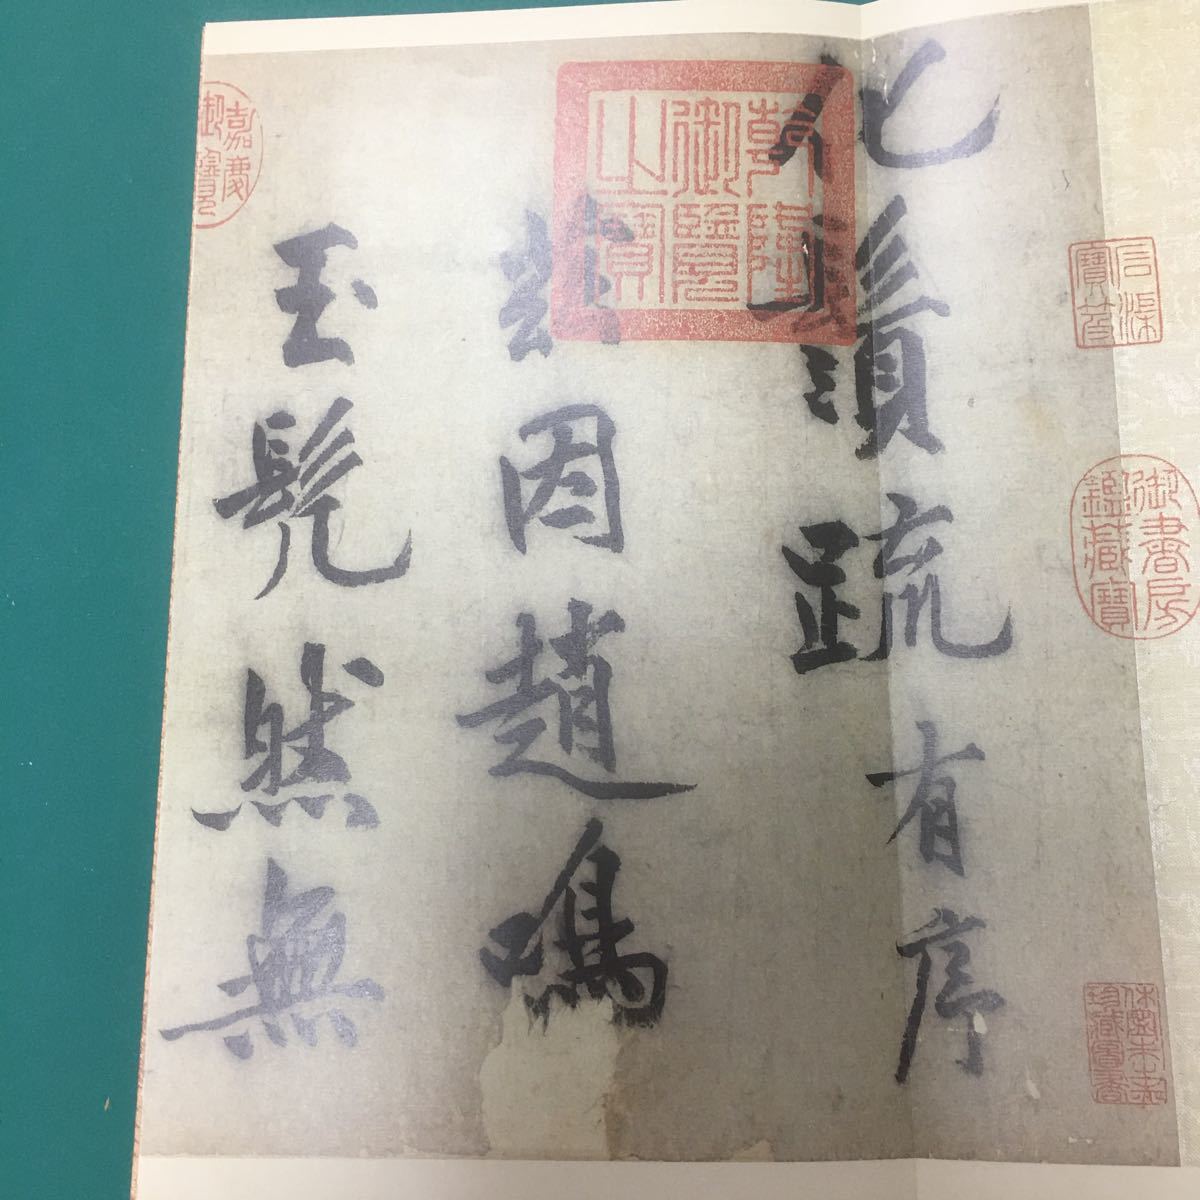 化鬚疏有序
兹因趙鳴
玉髡然無
乾隆
御覽
之寶
嘉慶
御覽
石渠
寶笈
御書房
鑑藏寶
休寧朱之赤
珍藏圖書